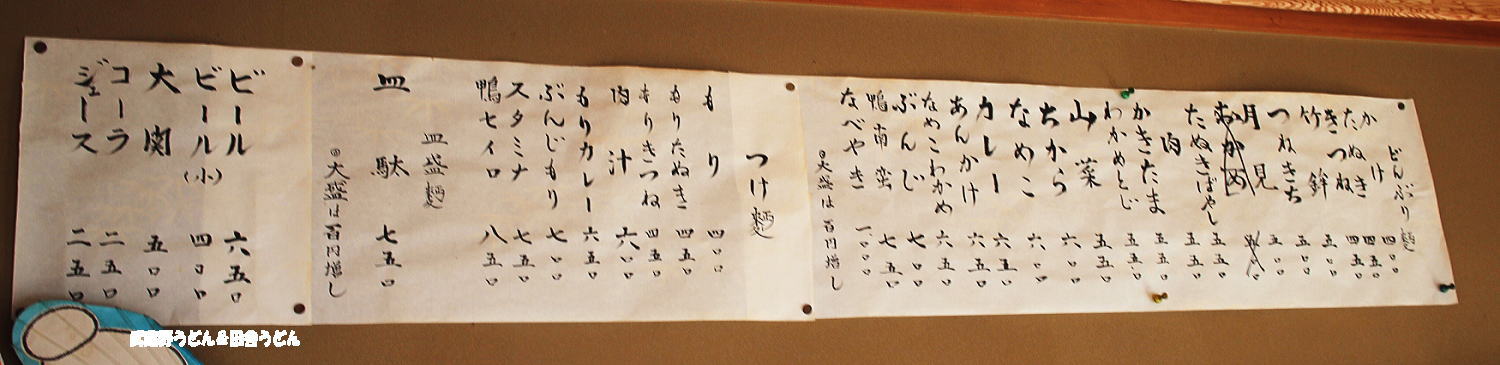 どんぶり麺
かけ 四〇〇
たぬき 四五〇
きつね 四五〇
竹鉾 五〇〇
つねきち 五〇〇
月見 五〇〇
おかめ
たぬきばやし 五五〇
肉 五五〇
かきたま 五五〇
わかめとじ 五五〇
山菜 五五〇
ちから 六〇〇
なめこ 六〇〇
カレー 六五〇
あんかけ 六五〇
なめこわかめ 六五〇
ぶんじ 七〇〇
鴨南蛮 七五〇
なべやき 一、〇〇〇
◎大盛は百円増し
つけ麺
もり 四〇〇
もりたぬき 四五〇
もりきつね 四五〇
肉汁 六〇〇
もりカレー 六五〇
ぶんじもり 七〇〇
スタミナ 七五〇
鴨セイロ 八五〇
皿盛麺
皿駄 七五〇
◎大盛は百円増し
ビール 六五〇
ビール(小) 四〇〇
大関 五〇〇
コーラ 二五〇
ジュース 二五〇
武蔵野うどん&田舎うどん